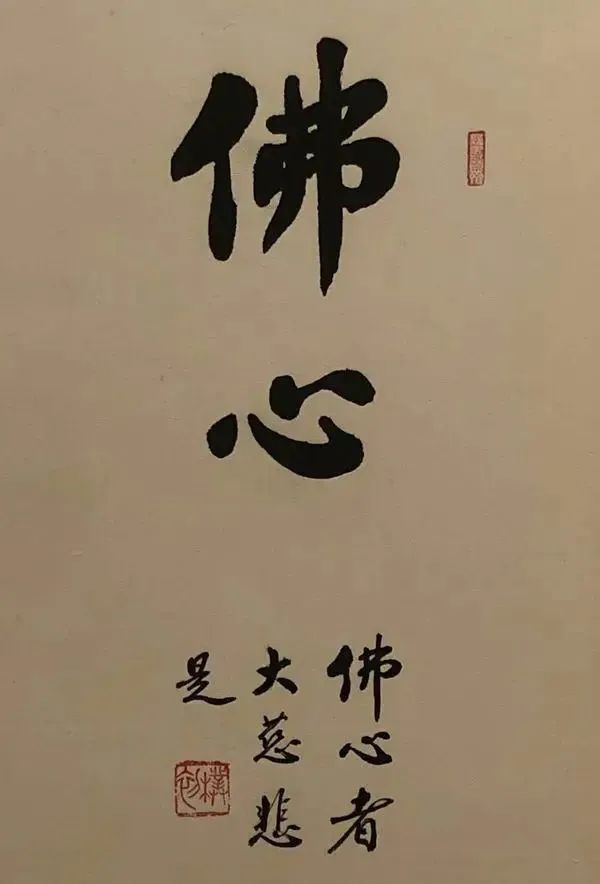 佛心
佛心者
大慈悲
是